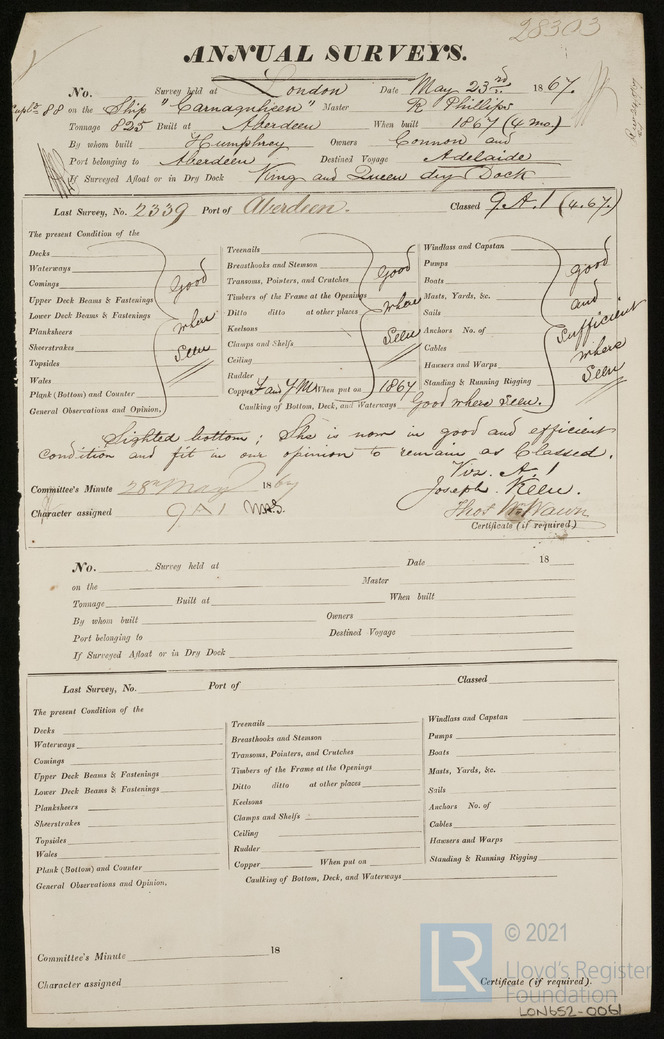 28303
ANNUAL SURVEYS.
No. Survey held at London Date May 23rd 1867.
88 on the Ship "Carnaquheen" Master R Phillips
Tonnage 825 Built at Aberdeen When built 1867 (4 mo.)
By whom built Humphrey Owners Connon and
Port belonging to Aberdeen Destined Voyage Adelaide
If Surveyed Afloat or in Dry Dock King and Queen dry Dock
Last Survey, No. 2339 Port of Aberdeen. Classed 9 A.1 (4.67.)
The present Condition of the
Decks
Waterways
Comings
Upper Deck Beams & Fastenings
Lower Deck Beams & Fastenings
Planksheers
Sheerstrakes
Topsides
Wales
Plank (Bottom) and Counter
General Observations and Opinion,
Good
where
seen
Treenails
Breasthooks and Stemson
Transoms, Pointers, and Crutches
Timbers of the Frame at the Openings
Ditto ditto at other places
Keelsons
Clamps and Shelfs
Ceiling
Rudder
Copper F and Y M When put on 1867
Caulking of Bottom, Deck, and Waterways Good where seen.
Good
where
seen
Windlass and Capstan
Pumps
Boats
Masts, Yards, &c.
Sails
Anchors No. of
Cables
Hawsers and Warps
Standing & Running Rigging
good
and
sufficient
where
seen
Sighted bottom; She is now in good and efficient
condition and fit in our opinion to remain as Classed.
Viz. A.1
Committee's Minute 28th May 1867
Joseph Keen.
Character assigned 9 A 1
Thos
Certificate (if required.)
No. Survey held at Date 18
on the Master
Tonnage Built at When built
By whom built Owners
Port belonging to Destined Voyage
If Surveyed Afloat or in Dry Dock
Last Survey, No. Port of Classed
The present Condition of the
Decks
Waterways
Comings
Upper Deck Beams & Fastenings
Lower Deck Beams & Fastenings
Planksheers
Sheerstrakes
Topsides
Wales
Plank (Bottom) and Counter
General Observations and Opinion.
Treenails
Breasthooks and Stemson
Transoms, Pointers, and Crutches
Timbers of the Frame at the Openings
Ditto ditto at other places
Keelsons
Clamps and Shelfs
Ceiling
Rudder
Copper When put on
Caulking of Bottom, Deck, and Waterways
Windlass and Capstan
Pumps
Boats
Masts, Yards, &c.
Sails
Anchors No. of
Cables
Hawsers and Warps
Standing & Running Rigging
Committee's Minute 18
Character assigned
Certificate (if required).
LR © 2021
Lloyd's Register
Foundation
LON652-0061